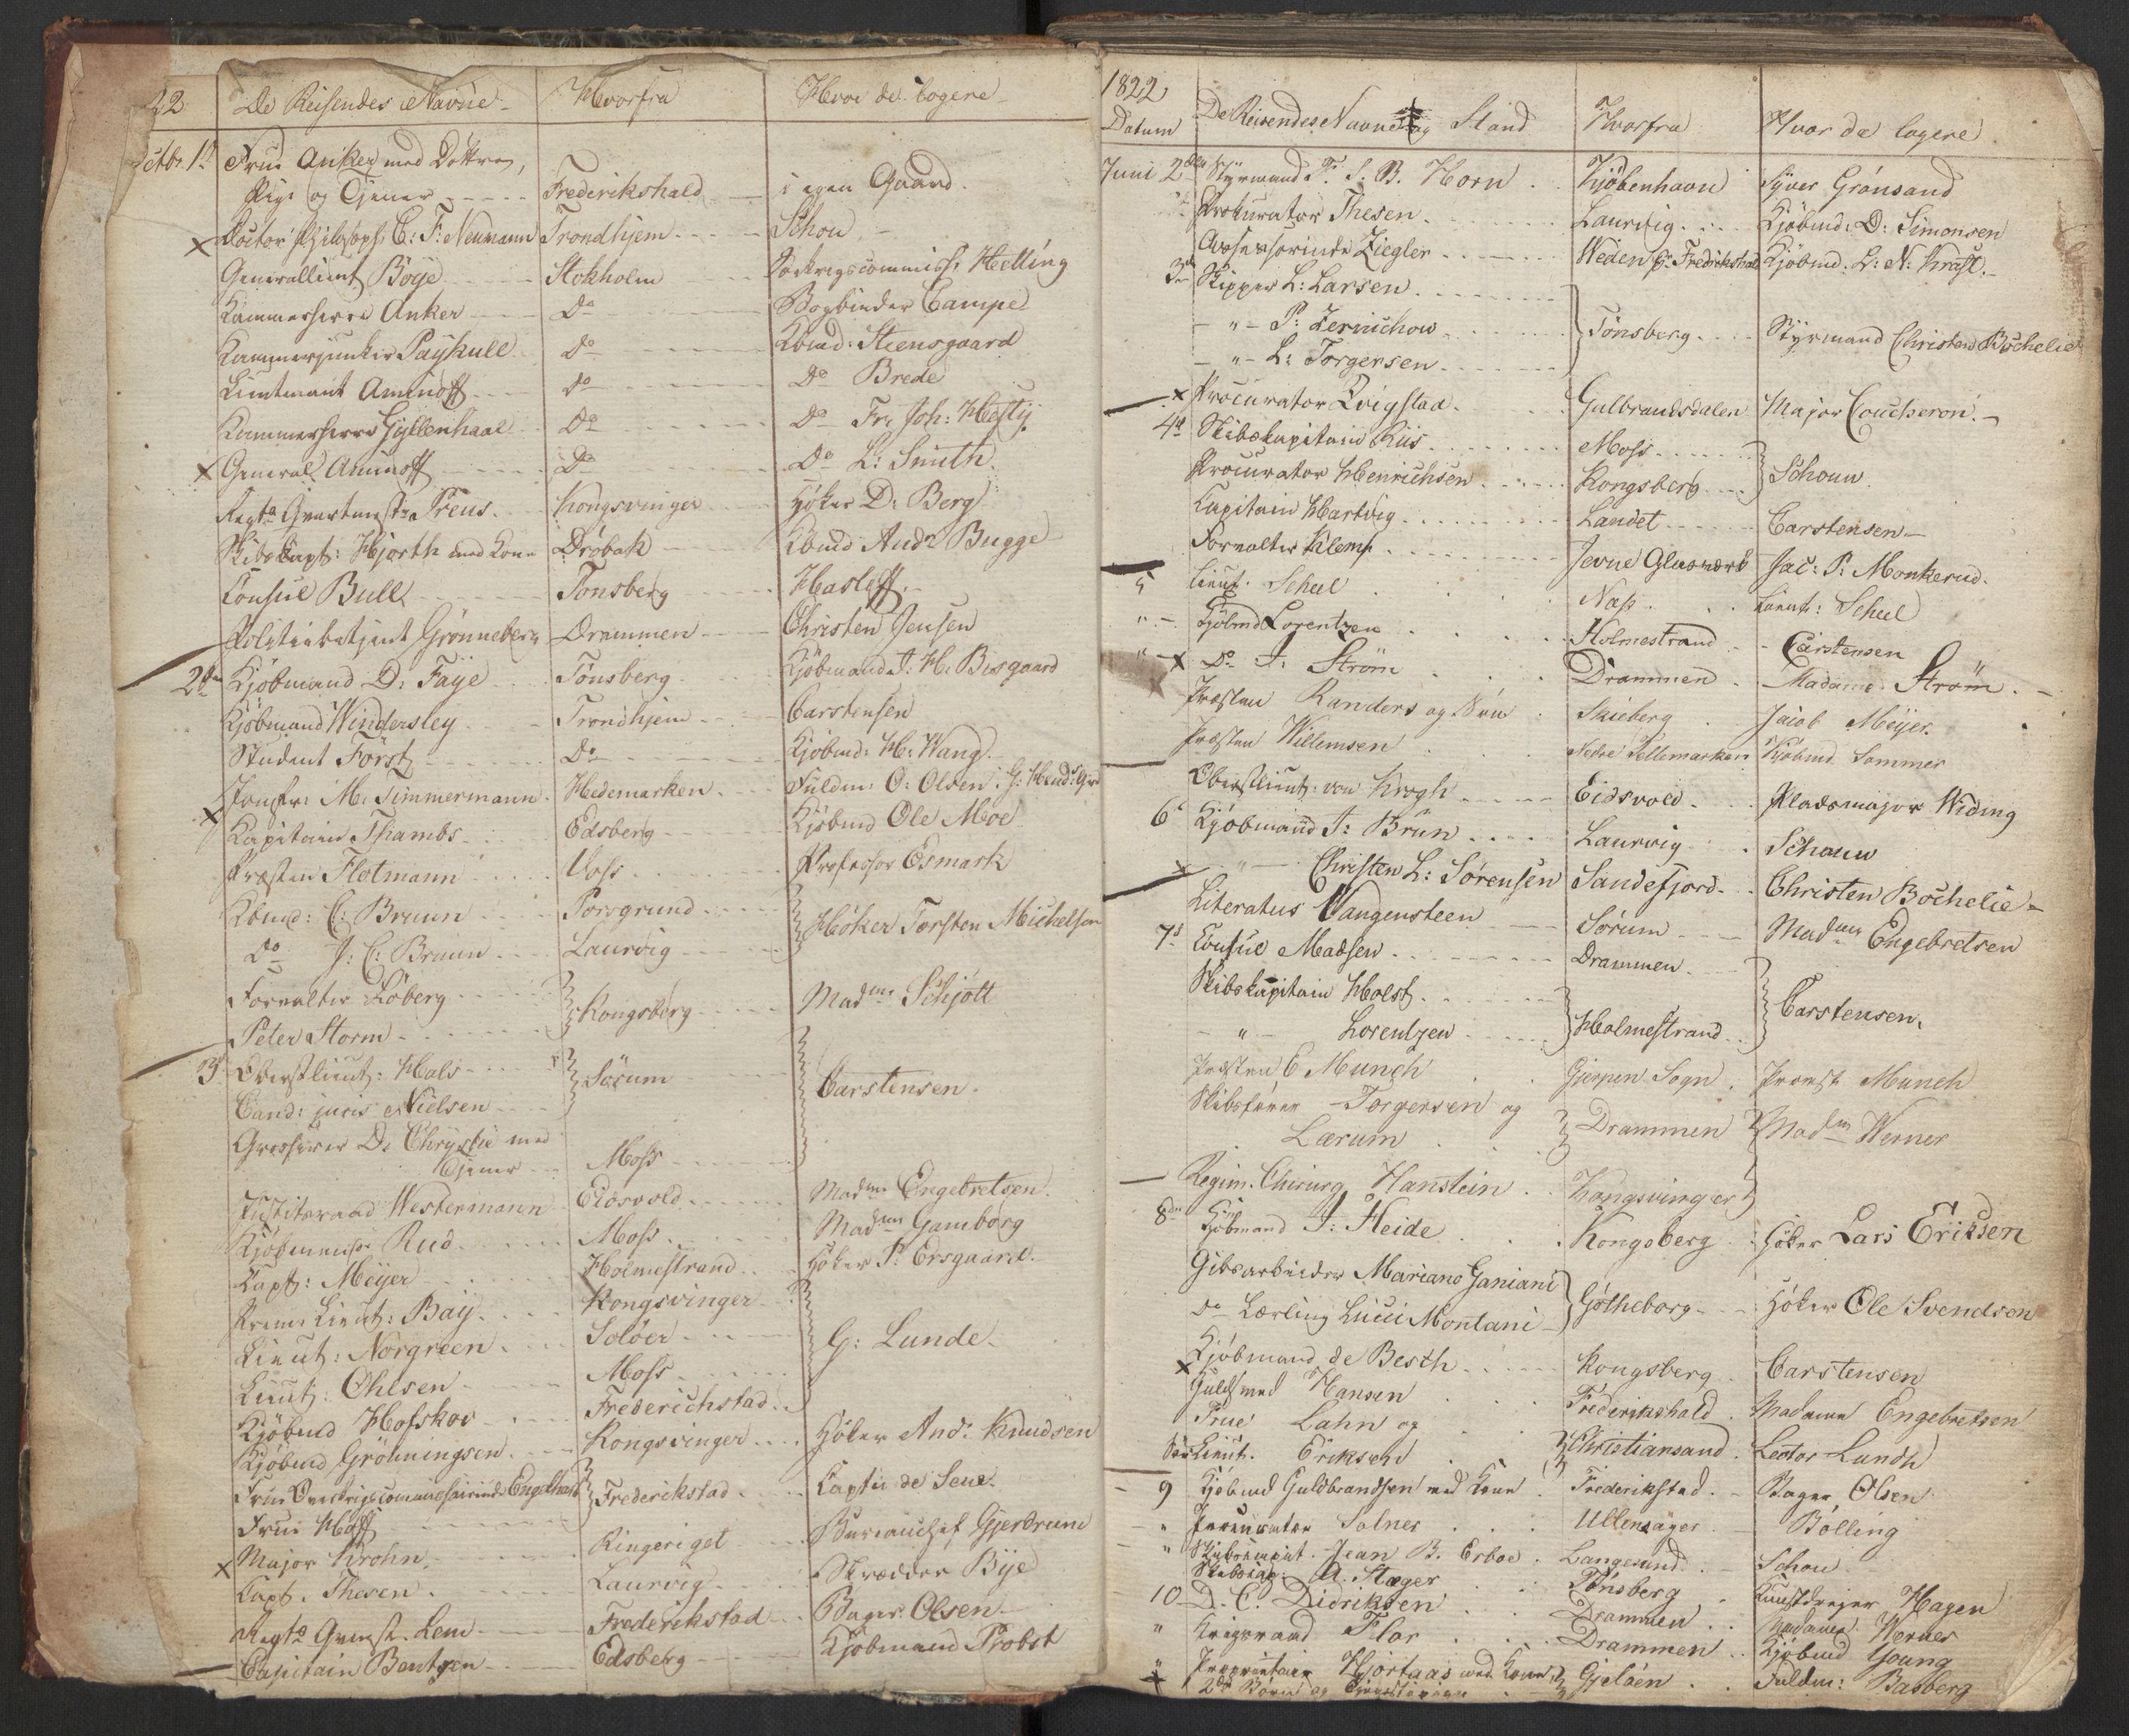 22 De Reisendes Navne Hvorfra Hvor de logere
Octbr. 1d Frue Anker med Döttre,
Pige og Tjener Frederikshald i egen Gaard.
x Doctor Philosoph: C: F: Neumann Trondhjem Schou
Generallieut Boye Stokholm Helling
Kammerherre Anker Do Bogbinder Campe
Kammerjunker Paykull Do Kbmd: Steensgaard
Lieutenant Aminoff Do Do Brede
Kammerherre Gyllenhaal Do Do Fr: Joh: Hesty
x General Aminoff Do Do L: Smith
Regts Qvartmstr Preus Kongsvinger Höker D: Berg
Skibskapt: Hjorth med Kone Dröbak Kbmd Andr Bugge
Consul Bull Tønsberg Hasleff
Politiebetjent Grønneberg Drammen Christen Jensen
2den Kjöbmand D: Faye Tönsberg Kjöbmand J. H. Bisgaard
Kjöbmand Windersley Trondhjem Carstensen
Student Först Do Kjöbmd: H: Wang
Jomfr: M: Timmermann Hedemarken Fuldm: O: Olsen
x Kapitain Thambs Edsberg Kjöbmd Ole Moe
Præsten Flotmann Voss Professor Esmark
Kbmd: C: Bruun Porsgrund Höker Torsten Michelsen
do J: C: Bruun Laurvig
Forvalter Löberg Kongsberg Madme Schjött
Peter Storm
3 Oberstlieut: Hals Sörum Carstensen.
Cand: juris Nielsen
Grosserer D: Chrystie med
Tjener Moss
Justitsraad Westermann Eidsvold Madme Engebretsen.
Kjöbmand Rud Moss Madme Gamborg
Capt: Meyer Holmestrand Höker P: Ersgaard.
Prem: Lieut: Bay Kongsvinger
Lieut: Norgreen Solöer G: Lunde
Lieut: Ohlsen Moss
Kjöbmd Hofskov Frederichstad
Kjöbmd Gröhningsen Kongsvinger Höker And: Knudsen
Frue Overkrigscommissairinde Engelhart Frederikstad Captn de Seue
Frue Hoff
x Major Krohn Ringeriget Bureauchef Gjerdrum
Capt. Thesen Laurvig Skrædder Bye
Regts Qvmst. Lem Frederikstad Bager Olsen
Capitain Bentzen Edsberg Kjöbmand Probst
1822
Datum De Reisendes Navne og Stand Hvorfra Hvor de logere
Juni 2den Styrmand F. S. B. Horn Kjöbenhavn Syver Grönsand
Prokurator Thesen Laurvig Kjöbmd: D: Simonsen
Assessorinde Ziegler Weden pr Fredrikshald Kjöbmd: L: N: Kraft
3de Skipper L: Larsen
" P: Zernichow Tönsberg Styrmand Christen Bochelie
" L: Torgersen
x Procurator Qvigstad Gulbrandsdalen Major Coucheron
4de Skibskapitain Riis Moss Schouw
Procurator Henrichsen Kongsberg
Capitain Hartvig Landet Carstensen
Forvalter Klemp Jevne Glasværk Jac: P: Monkerud
5 Lieut. Scheel Næss Lieut: Scheel
" Kjöbmd Lorentzen Holmestrand Carstensen
" x Do J: Ström Drammen Madame Ström
Præsten Randers og Sön Skieberg Jacob Meyer
Præsten Willemsen Nedre Tellemarken Kjöbmd Sommer
Oberstlieut: von Krogh Eidsvold Pladsmajor Widing
6te Kjöbmand J: Brün Laurvig Schouw
x " Christen L: Sørensen Sandefjord Christen Bochelie
Literatus Wangensteen Sörum Madme Engebretsen
7de Consul Madsen Drammen
Skibskapitain Holst Carstensen.
" Lorentzen Holmestrand
Præsten C Munch Gjerpen Sogn Provst Munch
Skibsförer Torgersen og
Lærum Drammen Madm Werner
Regim. Chirurg Hanstein Kongsvinger
8de Kjöbmand J: Heide Kongsberg Höker Lars Eriksen
Gibsarbeider Mariano Ganiani
do Lærling Lucci Montani Götheborg Höker Ole Svendsen
x Kjöbmand de Besth Kongsberg Carstensen
Guldsmed Hansen Frederikshald Madame Engebretsen
Frue Lahn og
Lieut. Eriksen Christiansand Lector Lundh
9 Kjöbmd Guldbrandsen med Kone Frederikstad Bager Olsen
" Procurator Solner Ullensager Bölling
" Jean B. Erboe Langesund Schou
Skibscap. A. Stæger Tönsberg Kunstdreier Hagen
10 D. C. Didriksen Drammen Madame Werner
" Krigsraad Flor Drammen Kjöbmd Young
" Proprietair Hjortaas med Kone Gjelöen Fuldm: Basberg
x 2de Börn og